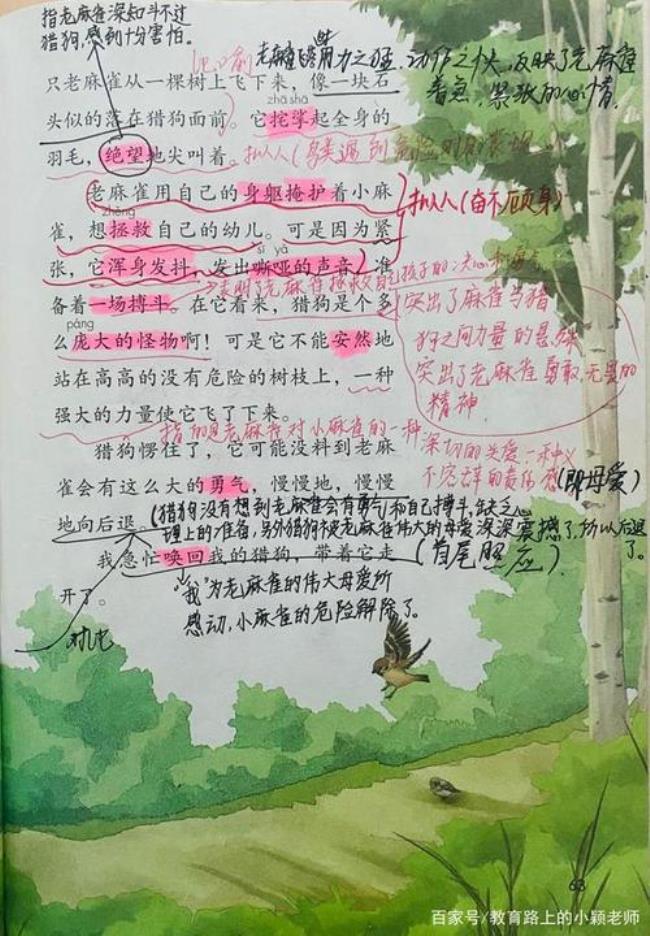 指老麻雀深知斗不过
猎狗,感到十分害怕。
比喻
老麻雀飞落用力之猛,动作之快,反映了老麻雀
着急,紧张的心情。
只老麻雀从一棵树上飞下来,像一块石
zhā shā
头似的落在猎狗面前。它挓挲起全身的
羽毛,绝望地尖叫着。
拟人(
老麻雀用自己的身躯掩护着小麻
拟人(奋不顾身)
zhěng
雀,想拯救自己的幼儿。可是因为紧
sī yǎ
张,它浑身发抖,发出嘶哑的声音。准
表明了老麻雀拯救自己孩子的决心和勇气
备着一场搏斗。在它看来,猎狗是个多
páng
么庞大的怪物啊!可是它不能安然地
突出了麻雀与猎
狗之间力量的悬殊
突出了老麻雀勇敢,无畏的
精神.
站在高高的没有危险的树枝上,一种
强大的力量使它飞了下来。
指的是老麻雀对小麻雀的一种
深切的关爱,一种义
不容辞的责任感
(即母爱)
猎狗愣住了,它可能没料到老麻
雀会有这么大的勇气,慢慢地,慢慢
地向后退。
(猎狗没有想到老麻雀会有勇气和自己搏斗,缺乏心
理上的准备,另外猎狗被老麻雀伟大的母爱深深震撼了,所以后退
了。
我急忙唤回我的猎狗,带着它走
(首尾照应)
开了。
"我"为老麻雀的伟大母爱所
感动,小麻雀的危险解除了。
对比
63
百家号/教育路上的小颖老师